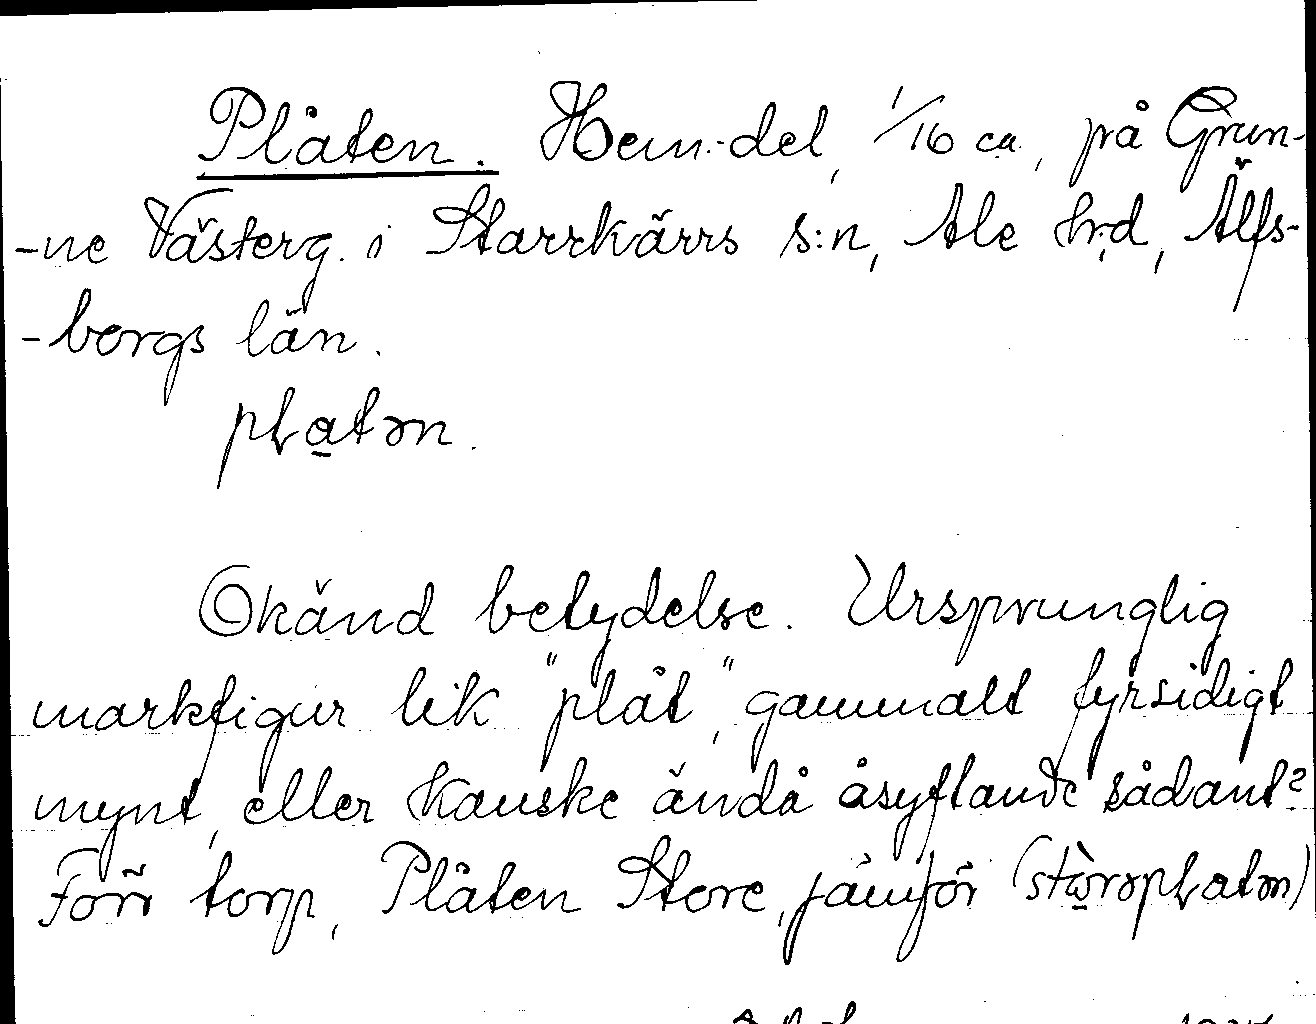 Plåten. Hem.-del, 1/16 ca, på Grun-
-ne Västerg. i Starrkärrs s:n, Ale h:d, Älfs-
-borgs län.
pɫatən.
Okänd betydelse. Ursprunglig
markfigur lik "plåt", gammalt fyrsidigt
mynt, eller kanske ändå åsyftande sådant?
Förr torp, Plåten Store, jämför (stòrəpɫatən)